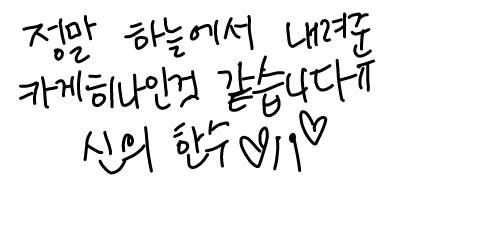 정말 하늘에서 내려준
카게히나인것 같습니다ㅠ
신의 한수♡!!♡